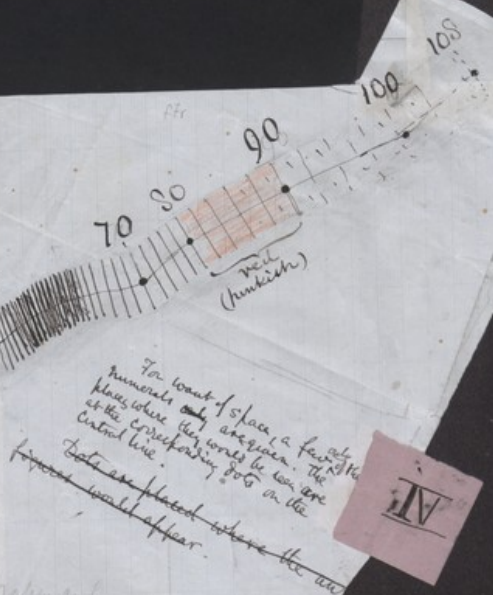 108
100
90
80
70
ffr
red
(pinkish)
For want of space, a few only
numerals are given. The
places where they would be seen are
at the corresponding dots on the
Central line.
Dots are placed where the
figures would appear.
IV